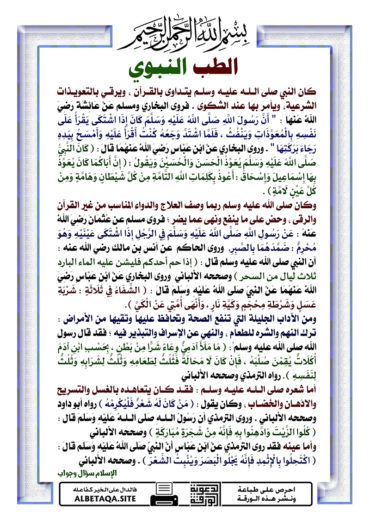 بسم الله الرحمن الرحيم
الطب النبوي
كان النبي صلى الله عليه وسلم يتداوى بالقرآن ، ويرقي بالتعويذات
الشرعية، ويأمر بها عند الشكوى . فروى البخاري ومسلم عن عائشة رضي
الله عنها : " أَنَّ رَسُولَ اللهِ صَلَّى اللهُ عَلَيْهِ وَسَلَّمَ كَانَ إِذَا اشْتَكَى يَقْرَأُ عَلَى
نَفْسِهِ بِالْمُعَوِّذَاتِ وَيَنْفُثُ ، فَلَمَّا اشْتَدَّ وَجَعُهُ كُنْتُ أَقْرَأُ عَلَيْهِ وَأَمْسَحُ بِيَدِهِ
رَجَاءَ بَرَكَتِهَا " . وروى البخاري عَنْ ابْنِ عَبَّاسٍ رَضِيَ اللهُ عَنْهُمَا قَالَ : ( كَانَ النَّبِيُّ
صَلَّى اللهُ عَلَيْهِ وَسَلَّمَ يُعَوِّذُ الْحَسَنَ وَالْحُسَيْنَ وَيَقُولُ : ( إِنَّ أَبَاكُمَا كَانَ يُعَوِّذُ
بِهَا إِسْمَاعِيلَ وَإِسْحَاقَ : أَعُوذُ بِكَلِمَاتِ اللهِ التَّامَّةِ مِنْ كُلِّ شَيْطَانٍ وَهَامَّةٍ وَمِنْ
كُلِّ عَيْنٍ لَامَّةٍ ) .
وكان صلى الله عليه وسلم ربما وصف العلاج والدواء المناسب من غير القرآن
والرقى ، وحض على ما ينفع ونهى عما يضر ؛ فروى مسلم عَنْ عُثْمَانَ رَضِيَ اللهُ
عنه : عَنْ رَسُولِ اللهِ صَلَّى اللهُ عَلَيْهِ وَسَلَّمَ فِي الرَّجُلِ إِذَا اشْتَكَى عَيْنَيْهِ وَهُوَ
مُحْرِمٌ : ضَمَّدَهُمَا بِالصَّبِرِ. وروى الحاكم عن أنس بن مالك رضي الله عنه :
أن النبي صلى الله عليه وسلم قال : ( إذا حم أحدكم فليشن عليه الماء البارد
ثلاث ليال من السحر ) وصححه الألباني وروى البخاري عَنْ ابْنِ عَبَّاسٍ رضي
اللهُ عَنْهُمَا عَنْ النَّبِيِّ صلى الله عليه وسلم قَالَ : ( الشِّفَاءُ فِي ثَلَاثَةٍ : شَرْبَةِ
عَسَلٍ وَشَرْطَةِ مِحْجَمٍ وَكَيَّةِ نَارٍ ، وَأَنْهَى أُمَّتِي عَنْ الْكَيِّ ).
ومن الآداب الجليلة التي تنفع الصحة وتحافظ عليها وتقيها من الأمراض :
ترك النهم والشره للطعام ، والنهي عن الإسراف والتبذير فيه ؛ فقد قال رسول
الله صلى الله عليه وسلم : ( مَا مَلَأَ آدَمِيٌّ وِعَاءً شَرًّا مِنْ بَطْنٍ ، بِحَسْبِ ابْنِ آدَمَ
أُكُلَاتٌ يُقِمْنَ صُلْبَهُ ، فَإِنْ كَانَ لَا مَحَالَةَ فَثُلُثٌ لِطَعَامِهِ وَثُلُثٌ لِشَرَابِهِ وَثُلُثٌ
لِنَفَسِهِ ). رواه الترمذي وصححه الألباني
أما شعره صلى الله عليه وسلم : فقد كان يتعاهده بالغسل والتسريح
والادهان والخضاب ، وكان يقول : ( مَنْ كَانَ لَهُ شَعْرٌ فَلْيُكْرِمْهُ ) رواه أبو داود
وصححه الألباني . وروى الترمذي أن رسول الله صلى الله عليه وسلم قال :
( كُلُوا الزَّيْتَ وَادَّهِنُوا بِهِ فَإِنَّهُ مِنْ شَجَرَةٍ مُبَارَكَةٍ ) وصححه الألباني
وأما عينه فقد روى الترمذي عَنْ ابْنِ عَبَّاسٍ أَنَّ النَّبِيَّ صَلَّى اللهُ عَلَيْهِ وَسَلَّمَ قَالَ :
( اكْتَحِلُوا بِالْإِثْمِدِ فَإِنَّهُ يَجْلُو الْبَصَرَ وَيُنْبِتُ الشَّعْرَ ) . وصححه الألباني
الإسلام سؤال وجواب
احرص على طباعة
ونشر هذه الورقة
فالدال على الخير كفاعله
ALBETAQA.SITE